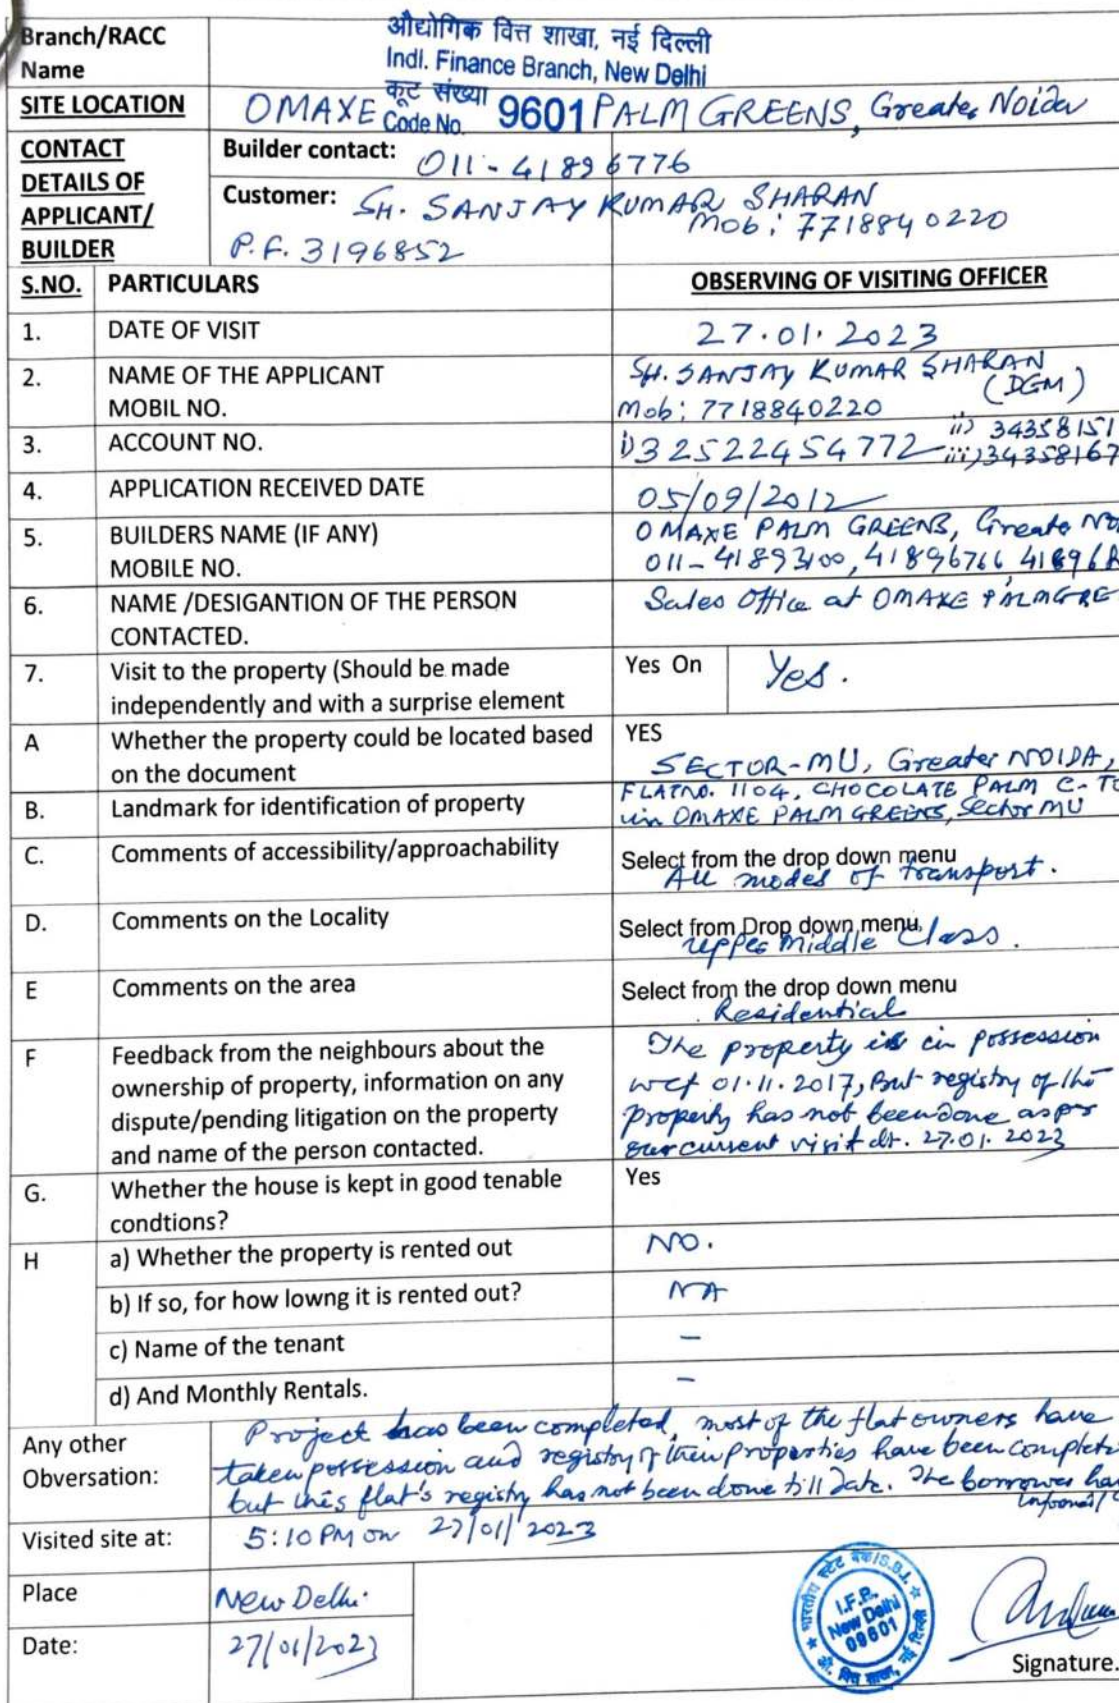 Branch/RACC Name
औद्योगिक वित्त शाखा, नई दिल्ली
Indl. Finance Branch, New Delhi
कूट संख्या
Code No. 9601
SITE LOCATION OMAXE PALM GREENS, Greater Noida
CONTACT DETAILS OF APPLICANT/ BUILDER
Builder contact: 011-41896776
Customer: SH. SANJAY KUMAR SHARAN
Mob: 7718840220
P.F. 3196852
S.NO. PARTICULARS OBSERVING OF VISITING OFFICER
1. DATE OF VISIT 27.01.2023
2. NAME OF THE APPLICANT SH. SANJAY KUMAR SHARAN
(DGM)
MOBIL NO. Mob: 7718840220
3. ACCOUNT NO. i) 32522454772 ii) 34358151
iii) 34358167
4. APPLICATION RECEIVED DATE 05/09/2012
5. BUILDERS NAME (IF ANY) OMAXE PALM GREENS, Greate No
MOBILE NO. 011-41893100, 41896766 41896
6. NAME /DESIGANTION OF THE PERSON Sales Office at OMAXE PALMGRE
CONTACTED.
7. Visit to the property (Should be made Yes On Yes.
independently and with a surprise element
A Whether the property could be located based YES
on the document SECTOR-MU, Greater NOIDA,
B. Landmark for identification of property FLAT NO. 1104, CHOCOLATE PALM C-TO
in OMAXE PALM GREENS, Sector MU
C. Comments of accessibility/approachability Select from the drop down menu
All modes of transport.
D. Comments on the Locality Select from Drop down menu,
upper middle class.
E Comments on the area Select from the drop down menu
Residential
F Feedback from the neighbours about the The property is in possession
ownership of property, information on any wef 01.11.2017, But registry of the
dispute/pending litigation on the property property has not been done as per
and name of the person contacted. our current visit dt. 27.01.2023
G. Whether the house is kept in good tenable Yes
condtions?
H a) Whether the property is rented out NO.
b) If so, for how lowng it is rented out? NA
c) Name of the tenant -
d) And Monthly Rentals. -
Any other Obversation: Project has been completed, most of the flat owners have
taken possession and registry of their properties have been complete
but this flat's registry has not been done till date. The borrower has
informed
Visited site at: 5:10 PM on 27/01/2023
Place New Delhi.
Date: 27/01/2023
भारतीय स्टेट बैंक/S.B.I.
I.F.B.
New Delhi
09601
औ. वित्त शाखा, नई दिल्ली
Signature.